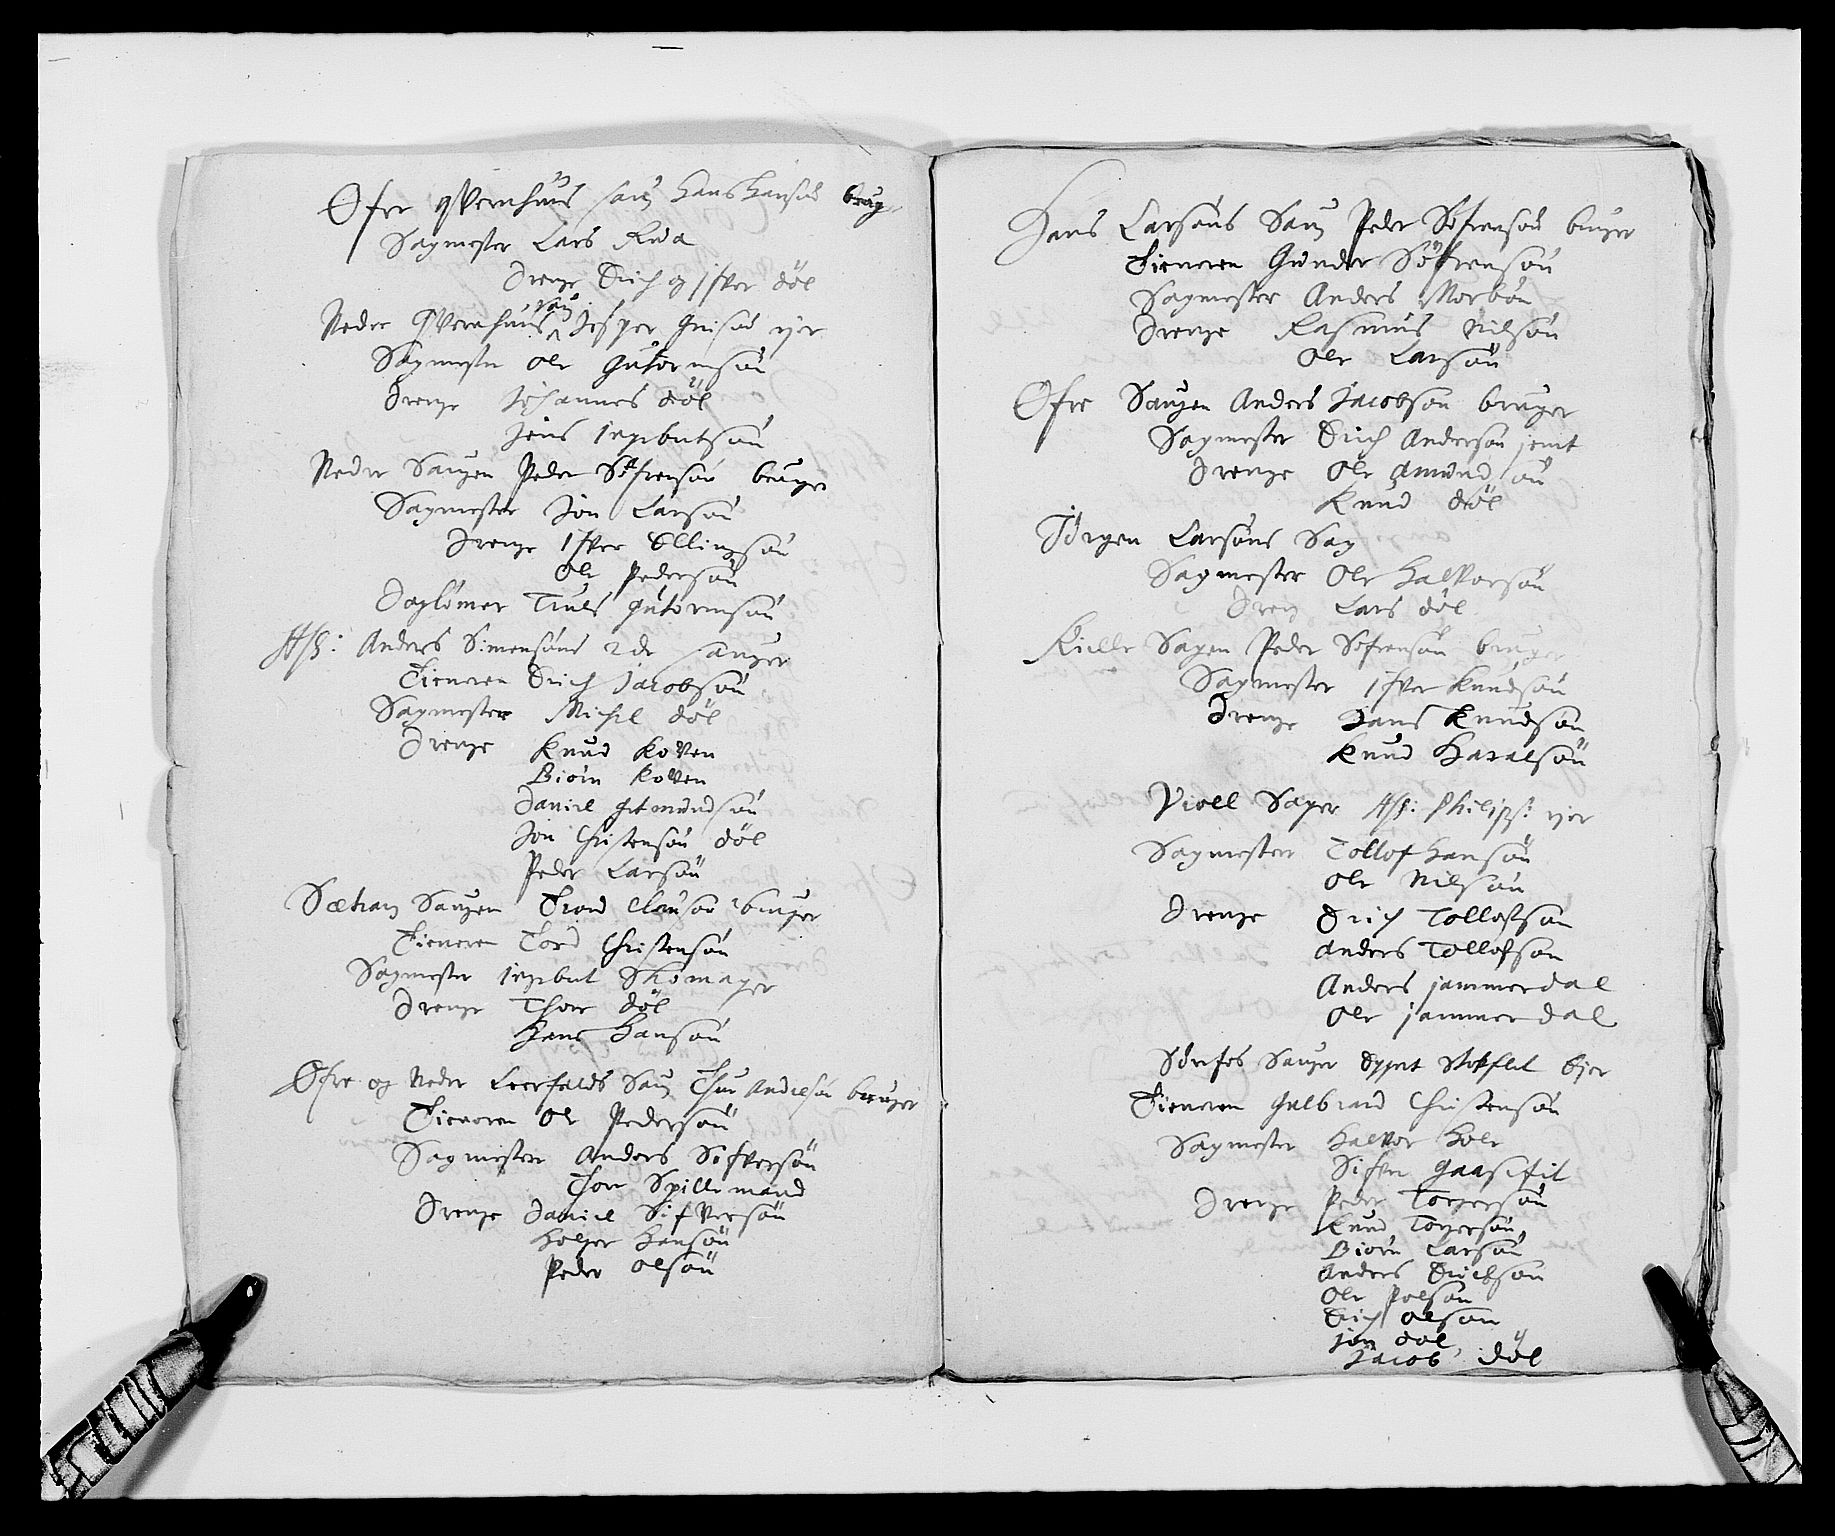 Øfre qvernhuus saug Hans Hansøn brug
Sagmester Lars
Drenge Erich og Ifver döl
Neder qvernhuus saug Jesper ejer
Sagmester Ole Gutormsøn
Drenge Johannes döl
Jens Ingebretsøn
Nedre Saugen Peder Søfrensøn bruger
Sagmester Jon Larsøn
Drenge Ifver Ellingsøn
Ole Pedersøn
Truls Gutormsøn
Ass: Anders Simensøns 2de sauger
Tieneren Erich Jacobsøn
Sagmester Michel döl
Drenge Knud Koven
Biørn Koven
Daniel Gutmundsøn
Jon Christensøn döl
Peder Larsøn
Saugen Trond Clausøn bruger
Tieneren Tord Christensøn
Sagmester Ingebret Skomager
Drenge Thore döl
Hans Hansøn
Øfre og Neder Leerfalds Saug Thue Andersøn bruger
Tieneren Ole Pedersøn
Sagmester Anders Sifversøn
Thore Spillemand
Drenge Daniel Sifversøn
Holger Hansøn
Peder Olsøn
Hans Larsøns Saug Peder Søfrensøn bruger
Tieneren Gunder Söfrensøn
Sagmester Anders Morbøn
Drenge Rasmus Nilsøn
Ole Larsøn
Øfre Saugen Anders Jacobsøn bruger
Sagmester Erich Andersøn jemt
Drenge Ole Amundsøn
Knud döl
Jørgen Larsøns Sag
Sagmester Ole Halvorsøn
Dreng Lars döl
Kielle Sagen Peder Søfrensøn bruger
Sagmester Ifver Knudsøn
Drenge Hans Knudsøn
Knud Haralsøn
Viell Sager Ass: Philips: ejer
Sagmester Tollof Hansøn
Ole Nilsøn
Drenge Erich Tollofsøn
Anders Tollofsøn
Anders jammerdal
Ole jammerdal
Sørefos Sauger Eggert Stofflet Ejer
Tieneren Gulbrand Christensøn
Sagmester Halvor Hole
Sifver
Drenge Peder Torgersøn
Knud Torgersøn
Biørn Larsøn
Anders Erichsøn
Ole Polsøn
Erich Olsøn
Jon döl
Jacob döl